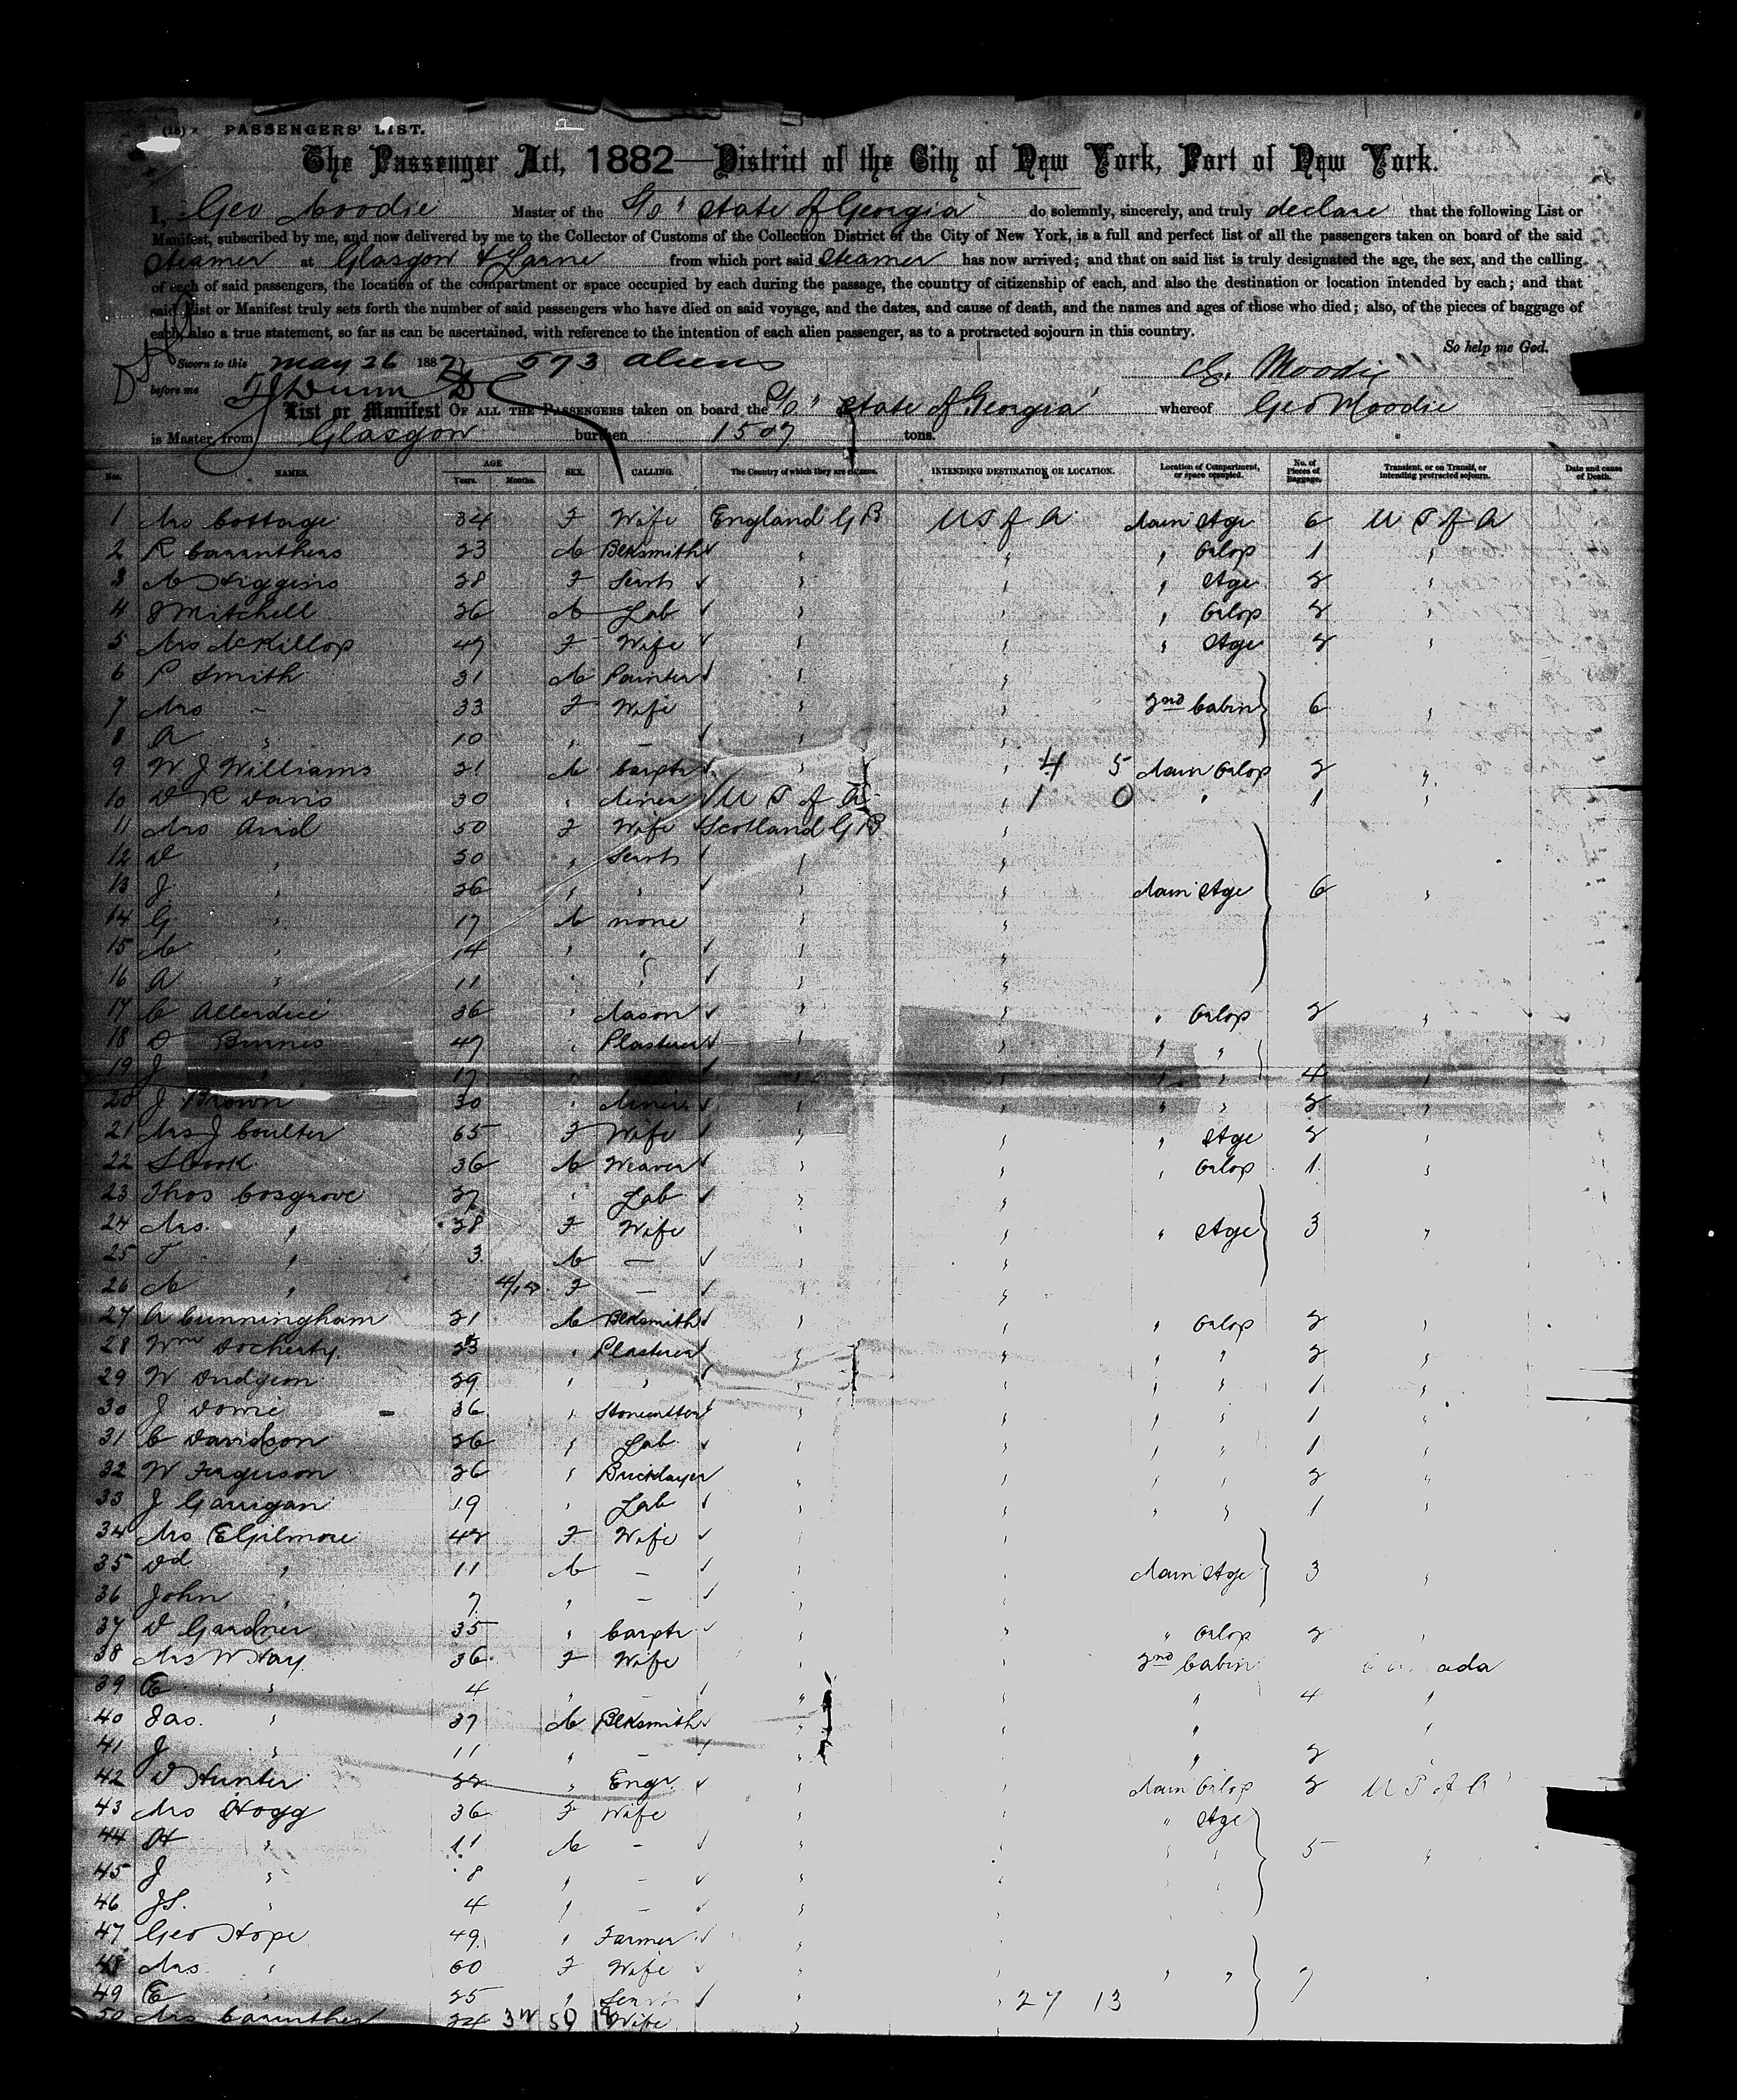 (15) PASSENGERS' LIST.
The Passenger Act, 1882—District of the City of New York, Port of New York.
I, Geo Moodie Master of the S/S "State of Georgia" do solemnly, sincerely, and truly declare that the following List or
Manifest, subscribed by me, and now delivered by me to the Collector of Customs of the Collection District of the City of New York, is a full and perfect list of all the passengers taken on board of the said
Steamer at Glasgow & Larne from which port said Steamer has now arrived; and that on said list is truly designated the age, the sex, and the calling
of each of said passengers, the location of the compartment or space occupied by each during the passage, the country of citizenship of each, and also the destination or location intended by each; and that
said List or Manifest truly sets forth the number of said passengers who have died on said voyage, and the dates, and cause of death, and the names and ages of those who died; also, of the pieces of baggage of
each, also a true statement, so far as can be ascertained, with reference to the intention of each alien passenger, as to a protracted sojourn in this country.
So help me God.
Sworn to this May 26 1887 573 aliens
G. Moodie
before me T J Dunn
List or Manifest OF ALL THE PASSENGERS taken on board the S/S "State of Georgia" whereof Geo Moodie
is Master, from Glasgow burthen 1507 tons.
Nos. NAMES. AGE Years. Months. SEX. CALLING. The Country of which they are citizens. INTENDING DESTINATION OR LOCATION. Location of Compartment, or space occupied. No. of Pieces of Baggage. Transient, or on Transit, or intending protracted sojourn. Date and cause of Death.
1 Mrs Cottage 34 F Wife England GB U S of A Main Stge 6 U S of A
2 R Carruthers 23 M Blksmith " " " Orlop 1 "
3 M Higgins 28 F Servt " " " Stge 2 "
4 J Mitchell 26 M Lab " " " Orlop 2 "
5 Mrs McKillop 47 F Wife " " " Stge 2 "
6 P Smith 31 M Painter " "
7 Mrs " 33 F Wife " " 2nd Cabin 6 "
8 A " 10 " — " "
9 W J Williams 21 M Carptr " " 4 5 Main Orlop 2 "
10 D R Davis 30 " Miner U S of A " 1 0 " 1 "
11 Mrs Arid 50 F Wife Scotland GB "
12 D " 30 " Servt " "
13 J " 26 " " " " Main Stge 6 "
14 G " 17 M none " "
15 M " 14 " " " "
16 A " 11 " " " "
17 C Allerdice 36 " Mason " " " Orlop 2 "
18 D Burnes 47 " Plasterer " " " "
19 J " 17 " " " " " " 4 "
20 J Brown 30 " Miner " " " " 2 "
21 Mrs J Coulter 65 F Wife " " " Stge 2 "
22 S Cook 36 M Weaver " " " Orlop 1 "
23 Thos Cosgrove 27 " Lab " "
24 Mrs " 28 F Wife " " " Stge 3 "
25 T " 3 M — " "
26 M " 4/12 F — " "
27 A Cunningham 21 M Blksmith " " " Orlop 2 "
28 Wm Docherty 23 " Plasterer " " " " 2 "
29 W Dudgeon 29 " " " " " " 1 "
30 J Dowie 36 " Stonecutter " " " " 1 "
31 C Davidson 26 " Lab " " " " 1 "
32 W Ferguson 26 " Bricklayer " " " " 2 "
33 J Garrigan 19 " Lab " " " " 1 "
34 Mrs E Gilmore 42 F Wife " "
35 Dd " 11 M — " " Main Stge 3 "
36 John " 7 " — " "
37 D Gardner 35 " Carptr " " " Orlop 2 "
38 Mrs W Hay 36 F Wife " " 2nd Cabin Canada
39 E " 4 " — " " " 4 "
40 Jas. " 37 M Blksmith " " " "
41 J " 11 " — " " " 2 "
42 D Hunter 22 " Engr. " " Main Orlop 2 U S of A
43 Mrs Hogg 36 F Wife " " " Stge
44 H " 11 M — " " " " 5 "
45 J " 8 " — " " "
46 JS. " 4 " — " "
47 Geo Hope 49 " Farmer " "
48 Mrs " 60 F Wife " " " " 7 "
49 E " 25 " Servt " " 27 13
50 Mrs Carruther 24 32 50 18 Wife " "